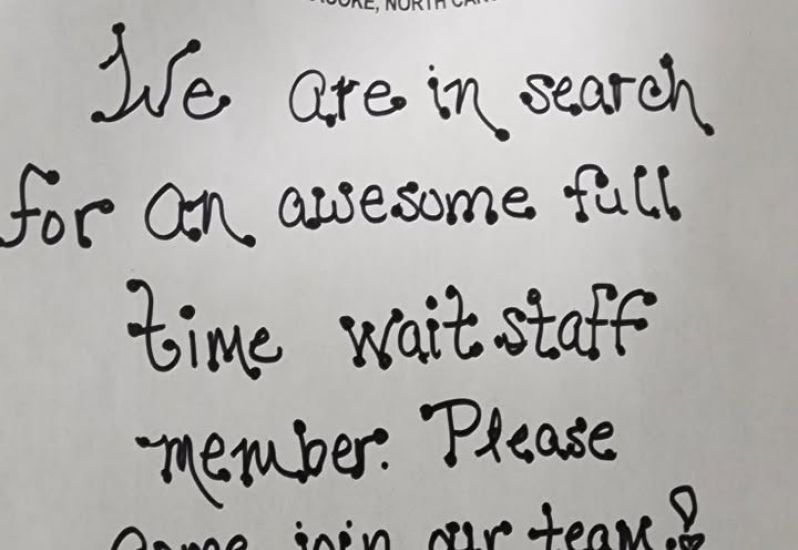 NORTH
We are in search
for an awesome full
time wait staff
member. Please
come join our team!